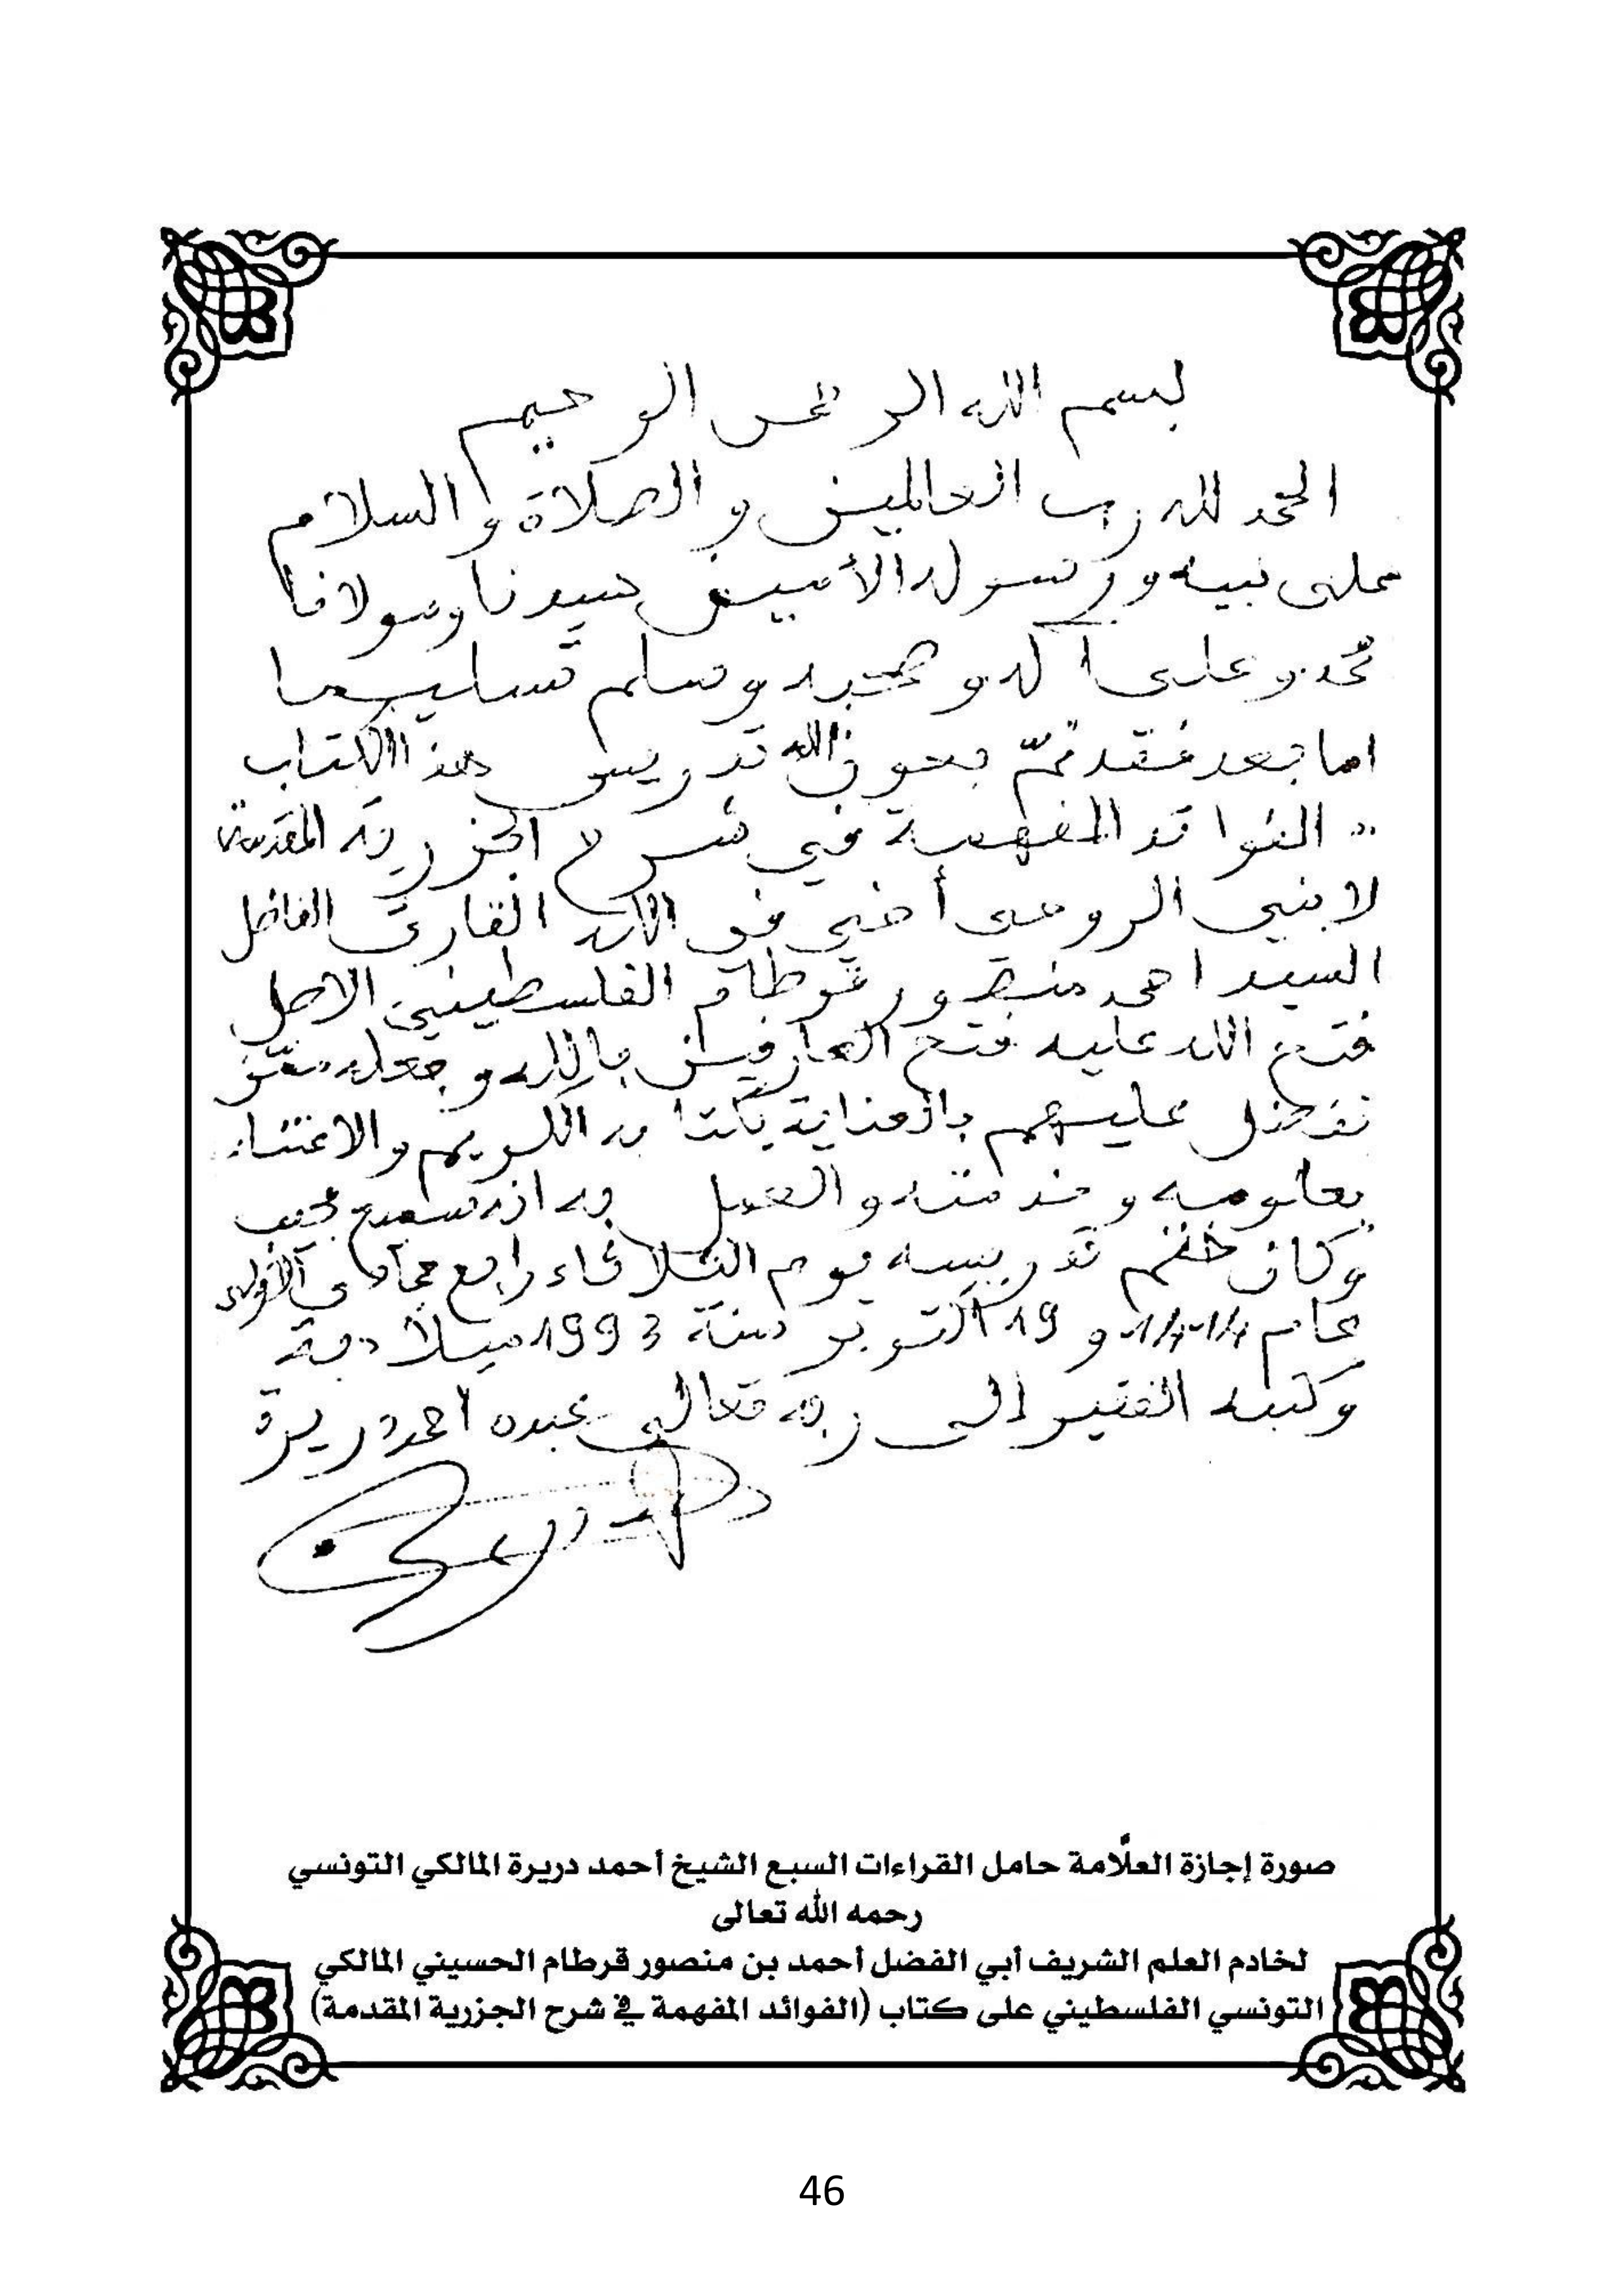 بسم الله الرحمن الرحيم
الحمد لله رب العالمين والصلاة والسلام
على نبيه ورسوله الأمين سيدنا ومولانا
محمد وعلى آله وصحبه وسلم تسليما
اما بعد فقد تمّ بعون الله تدريس هذا الكتاب
" الفوائد المفهمة في شرح الجزرية المقدمة
لابني الروحي أخي في الله القارئ الفاضل
السيد احمد منصور قرطام الفلسطيني الاصل
فتح الله عليه فتح العارفين بالله وجعله ممّن
تفضل عليهم بالعناية بكتابه الكريم والاعتناء
بعلومه وخدمته والعمل به انه سميع مجيب
وكان ختم تدريسه يوم الثلاثاء رابع جمادى الأولى
عام 1414 و 19 اكتوبر سنة 1993 ميلادية
وكتبه الفقير إلى ربه تعالى عبده احمد دريرة
صورة إجازة العلاَّمة حامل القراءات السبع الشيخ أحمد دريرة المالكي التونسي
رحمه الله تعالى
لخادم العلم الشريف أبي الفضل أحمد بن منصور قرطام الحسيني المالكي
التونسي الفلسطيني على كتاب (الفوائد المفهمة في شرح الجزرية المقدمة)
46